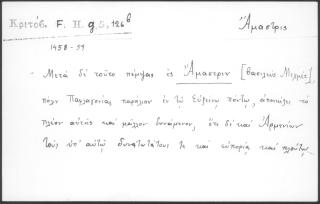 Κριτόβ. F. II. g 5, 126ᵇ
Ἄμαστρις
1458-59
- Μετὰ δὲ τοῦτο πέμψας ἐς Ἄμαστριν [βασιλεὺς Μεχμὲτ]
πόλιν Παφλαγονίας παράλιον ἐν τῷ Εὐξείνῳ πόντῳ, ἀποικίζει τὸ
πλέον αὐτῆς καὶ μᾶλλον δυνάμενον, ἔτι δὲ καὶ Ἀρμενίων
τοὺς ὑπ' αὐτῷ δυνατωτάτους τε καὶ εὐπορίᾳ καὶ πλούτῳ